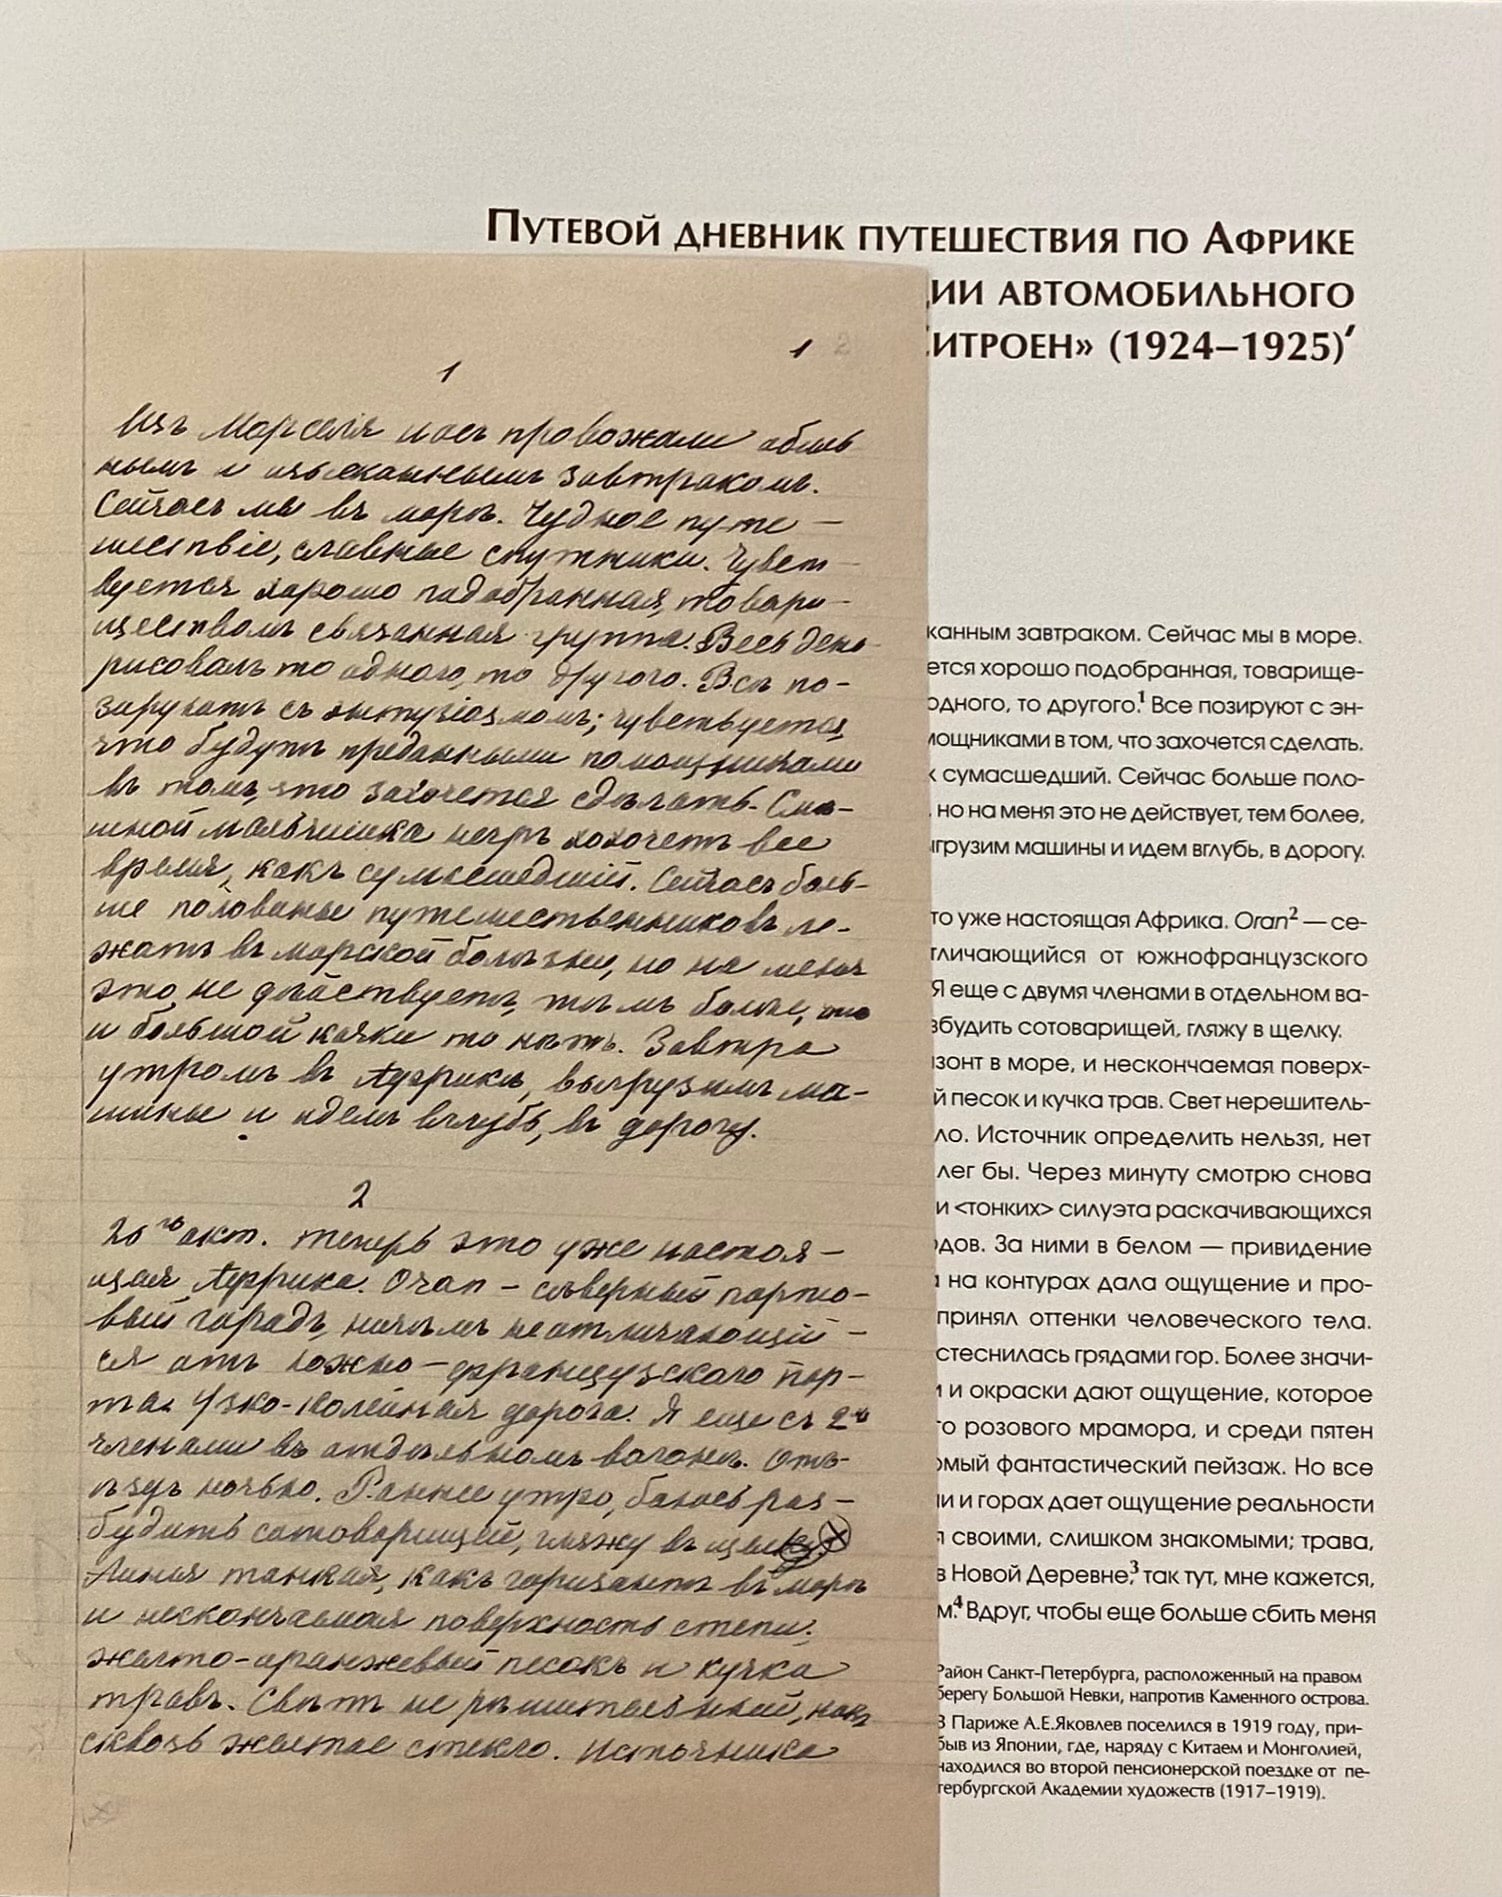 Путевой дневник путешествия по Африке
ии автомобильного
итроен» (1924–1925)′
1
1 2
Изъ Марселя насъ провожали обиль
нымъ и изысканнымъ завтракомъ.
Сейчасъ мы въ морѣ. Чудное путе –
шествіе, славные спутники. Чувст –
вуется хорошо подобранная, товари –
ществомъ связанная группа. Весь день
рисовалъ то одного, то другого. Всѣ по-
зируютъ съ энтузіазмомъ; чувствуется,
что будутъ преданными помощниками
въ томъ, что захочется сдѣлать. Смѣ-
шной мальчишка негръ хохочетъ все
время, какъ сумасшедшій. Сейчасъ боль-
ше половины путешественниковъ ле-
жатъ въ морской болѣзни, но на меня
это не дѣйствуетъ, тѣмъ болѣе, что
и большой качки то нѣтъ. Завтра
утромъ въ Африкѣ, выгрузимъ ма-
шины и идемъ вглубь, въ дорогу.
2
20го окт. Теперь это уже настоя –
щая Африка. Oran – сѣверный порто-
вый городъ, ничѣмъ не отличающій –
ся отъ южно – французского пор –
та. Узко-колейная дорога. Я еще съ 2мя
членами въ отдѣльномъ вагонѣ. Отъ-
ѣздъ ночью. Раннее утро, боюсь раз –
будить сотоварищей, гляжу въ щелку.
Линия тонкая, какъ горизонтъ въ морѣ
и нескончаемая поверхность степи;
желто-оранжевый песокъ и кучка
травъ. Свѣтъ не рѣшительный, какъ
сквозь желтое стекло. Источника
канным завтраком. Сейчас мы в море.
ется хорошо подобранная, товарище-
одного, то другого.1 Все позируют с эн-
мощниками в том, что захочется сделать.
к сумасшедший. Сейчас больше поло-
, но на меня это не действует, тем более,
ыгрузим машины и идем вглубь, в дорогу.
то уже настоящая Африка. Oran2 — се-
тличающийся от южнофранцузского
Я еще с двумя членами в отдельном ва-
збудить сотоварищей, гляжу в щелку.
изонт в море, и нескончаемая поверх-
й песок и кучка трав. Свет нерешитель-
ло. Источник определить нельзя, нет
лег бы. Через минуту смотрю снова
и <тонких> силуэта раскачивающихся
дов. За ними в белом — привидение
а на контурах дала ощущение и про-
принял оттенки человеческого тела.
стеснилась грядами гор. Более значи-
и и окраски дают ощущение, которое
го розового мрамора, и среди пятен
омый фантастический пейзаж. Но все
ми и горах дает ощущение реальности
я своими, слишком знакомыми; трава,
в Новой Деревне,3 так тут, мне кажется,
м.4 Вдруг, чтобы еще больше сбить меня
Район Санкт-Петербурга, расположенный на правом
берегу Большой Невки, напротив Каменного острова.
В Париже А.Е.Яковлев поселился в 1919 году, при-
быв из Японии, где, наряду с Китаем и Монголией,
находился во второй пенсионерской поездке от пе-
тербургской Академии художеств (1917–1919).